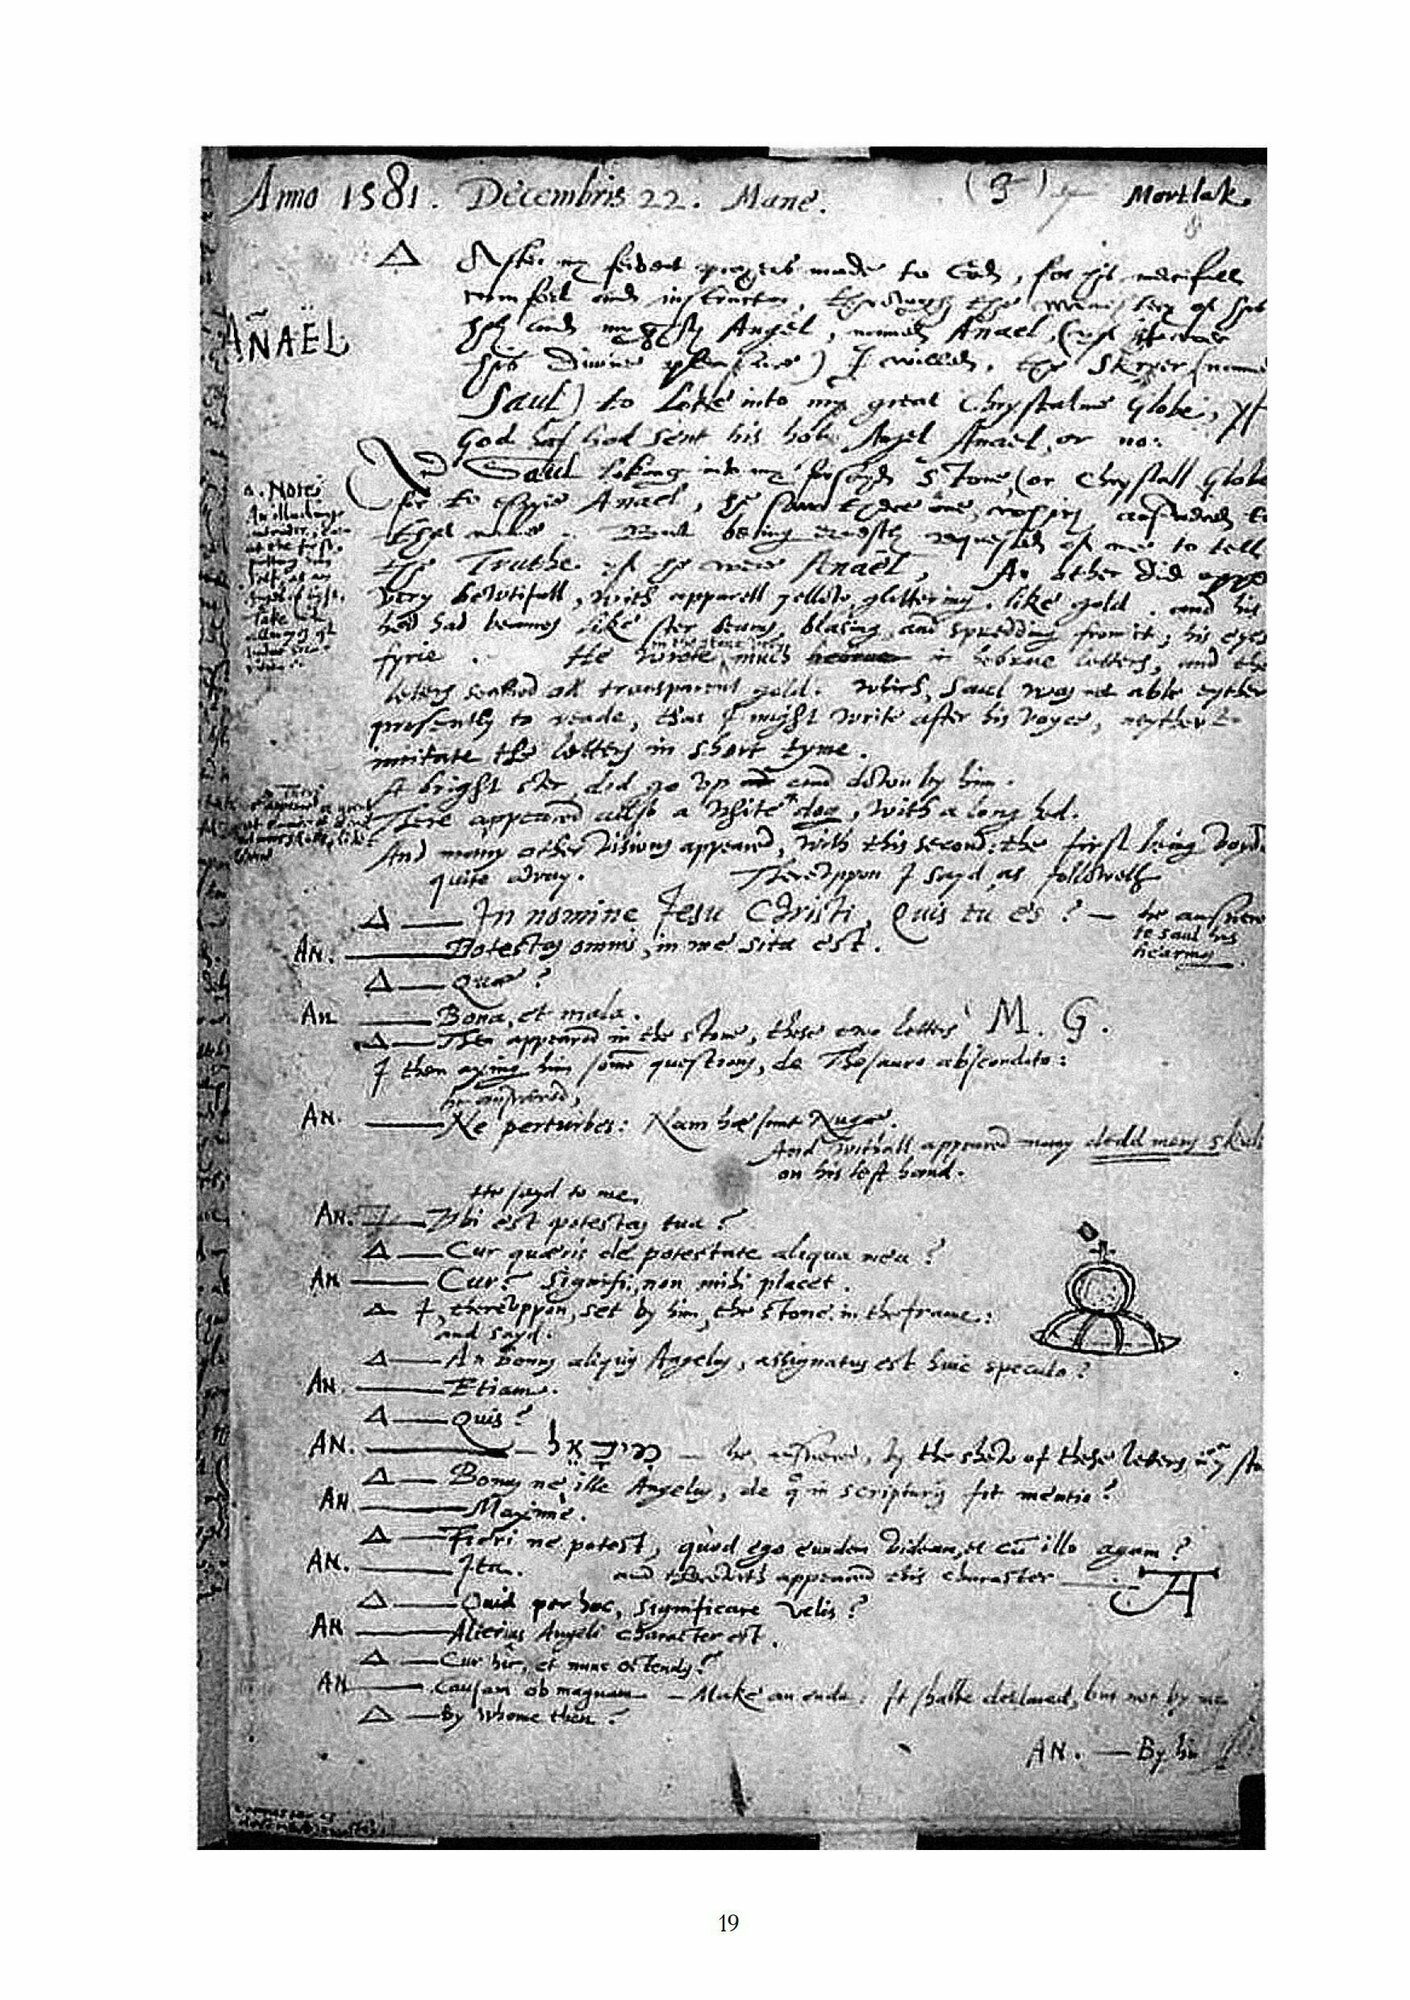 Anno 1581. Decembris 22. Mane. (3) Mortlak.
Δ After my fervent prayers made to God, for his mercifull
comfort and instruction, through the ministery of his
holy and mighty Angel, named Anael, (yf it wer
his divine pleasure) I willed, the Skryer (named
Saul) to loke into my great Chrystaline Globe, yf
God had sent his holy Angel Anael, or no:
AÑAËL
Saul loking into my forsayd stone, (or Chrystall Globe
for to espye Anael, he saw there one, which answered to
that name. But being ernestly requested of me to tell
the Truthe yf he were Anaël, An other did appe
very bewtifull, with apparell yellow, glittering, like gold. and his
hed had beames like ster beames, blasing, and spredding from it; his eyes
fyrie. He wrote in the stone very much in hebrue letters, and the
letters semed all transparent gold. which, Saul was not able eyther
presently to reade, that I might write after his voyce, neyther to
imitate the letters in short tyme.
A bright ster, did go up and down by him.
There appeared allso a white dog, with a long hed.
And many other visions appeared, with this second: the first being voyde
quite away. Thereuppon I sayd, as followeth
a. Note
An illuding
intruder, even
at the first,
putting him
self, as an
angel of light.
Take hede
allwayes of
Δ — In nomine Jesu Christi, Quis tu es? — he answered
to Saul his
hearing.
AN. — Potestas omnis, in me sita est.
Δ — Quæ?
AN — Bona, et mala.
Δ — Then appeared in the stone, these two letters M. G.
I then axing him some questions, de Thesauro abscondito:
he answered,
AN. — Ne perturbes: Nam hæ sunt Nugæ.
And withall appeared many dedd mens skulls
on his left hand.
He sayd to me,
AN. — Ubi est potestas tua?
Δ — Cur quæris de potestate aliqua mea?
AN — Cur? Signifi, non mihi placet.
Δ I, thereuppon, set by him, the stone in the frame:
and sayd.
Δ — An bonus aliquis Angelus, assignatus est huic speculo?
AN. — Etiam.
Δ — Quis?
AN. — מיכאל — he answered, by the shew of these letters in the sto
Δ — Bonus ne ille Angelus, de quo in scripturis fit mentio?
AN — Maxime.
Δ — Fieri ne potest, quòd ego eundem videam, et cum illo agam?
AN. — Ita. and therewith appeared this character —
Δ — Quid per hoc, significare velis?
AN. — Alterius Angeli character est.
Δ — Cur hîc, et nunc ostendis?
AN — Causam ob magnam — Make an ende: It shalbe declared, but not by me
Δ — By whome then?
AN. — By him
19